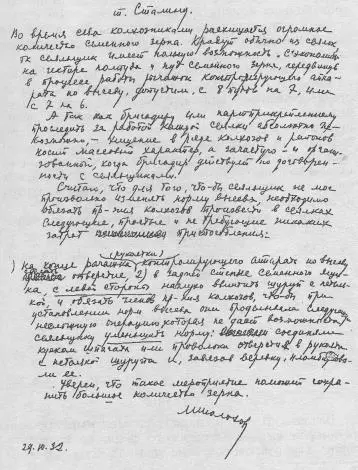 т. Сталину.
Во время сева колхозниками расхищается огромное
количество семенного зерна. Крадут обычно из сеялок
сеяльщик имеет полную возможность, сэкономить
на гектаре полтора - 2 пуда семенного зерна, передвинув
в процессе работы рычажок контролирующего аппарата
по высеву, допустим, с 8 пуд на 7, или
с 7 на 6.
А так как бригадиру или партприкрепленному
проследить за работой каждой сеялки абсолютно невозможно
- хищение в ряде колхозов и районов
носит массовый характер, а зачастую - и организованный,
когда бригадир действует по договоренности
с сеяльщиками.
Считаю, что для того, чтобы сеяльщик не мог
произвольно изменять норму высева, необходимо
обязать пр-ния колхозов произвести в сеялках
следующие, простые и не требующие никаких
затрат приспособления:
(рукоятки)
1) на конце рычажка контролирующего аппарата по высеву,
отверстие 2) в задней стенке семенного ящика,
с левой стороны наглухо ввинтить шуруп с петелькой,
и обязать членов пр-ния колхозов, чтобы при
установлении норм высева они проделывали следующую
несложную операцию, которая не дает возможности
сеяльщику уменьшать норму: соединяли
куском шпагата или проволоки отверстие в рукоятке
с петелькой шурупа и, завязав веревку, пломбировали
ее.
Уверен, что такое мероприятие поможет сохранить
большое количество зерна.
М. Шолохов
29.10.32.